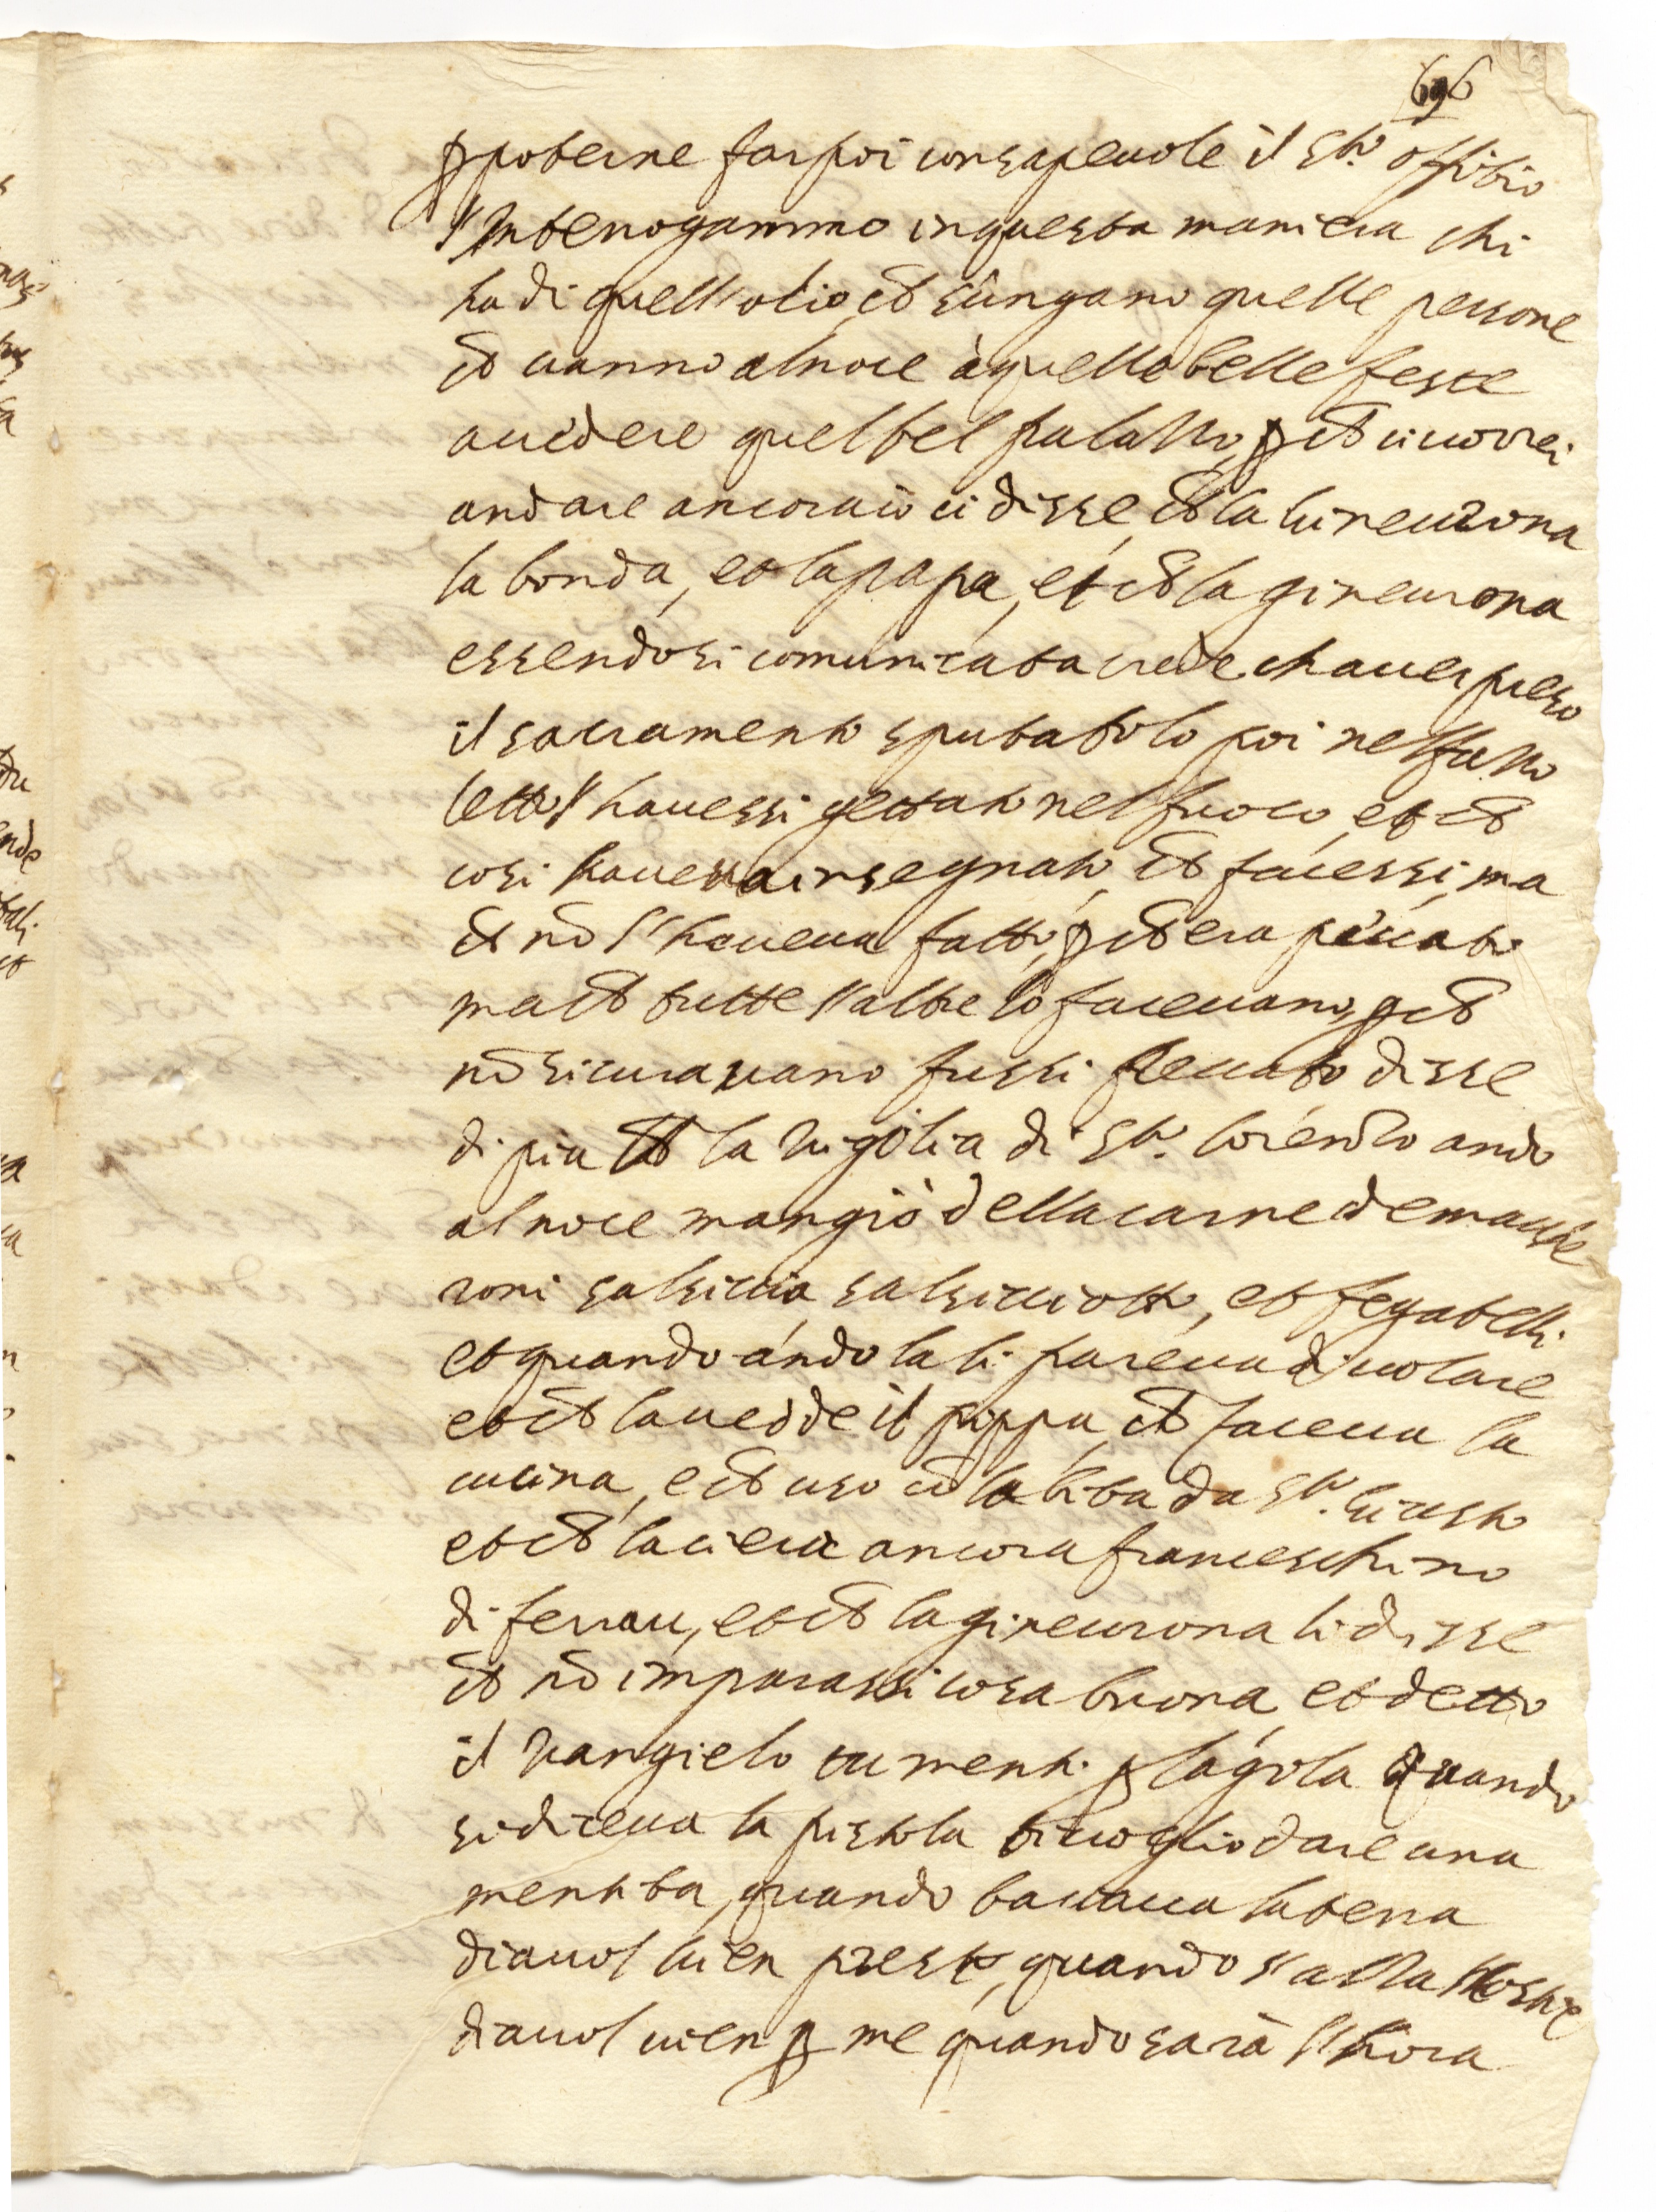 696
p poterne far poi consapeuole il sto offitio
l'Interrogammo in questa maniera chi
ha di quell'olio, ch s'ungano quelle persone
ch uanno al noce à quelle belle feste
a uedere quel bel palazzo, p ch ci uorrei
andare ancora iò ci disse, ch la Gineurona
la bonda, et la papa, et ch la gineurona
essendosi comunicata crede ch hauer preso
il sacramento sputatolo poi nel fazzo
letto l'hauessi gettato nel fuoco, et ch
cosi haueua insegnato, ch facessi, ma
ch nō l'haueua fatto, p ch era peccato
ma ch tutte l'altre lo faceuano, p ch
nō si curauano fussi peccato disse
di piu ch la Vigilia di Sto. lorenzo ando
al noce mangiò della carne de macche
roni salsiccia, salsicciotti, et fegatelli
et quando ando la li pareua di uolare
et ch la uedde il pippa, ch faceua la
cucina, et ch uso cō la tita da Sto.
et ch la ci era ancora franceschino
di ferrau, et ch la gineurona li disse
ch nō imparassi cosa buona, et detto
il Vangielo tu menti p la gola Quando
si diceua la pistola ti uoglio dare una
mentita, quando baciaua la terra
diauol uien presto, quando s'alza l'hostia
diauol uien p me quando sarà l'hora